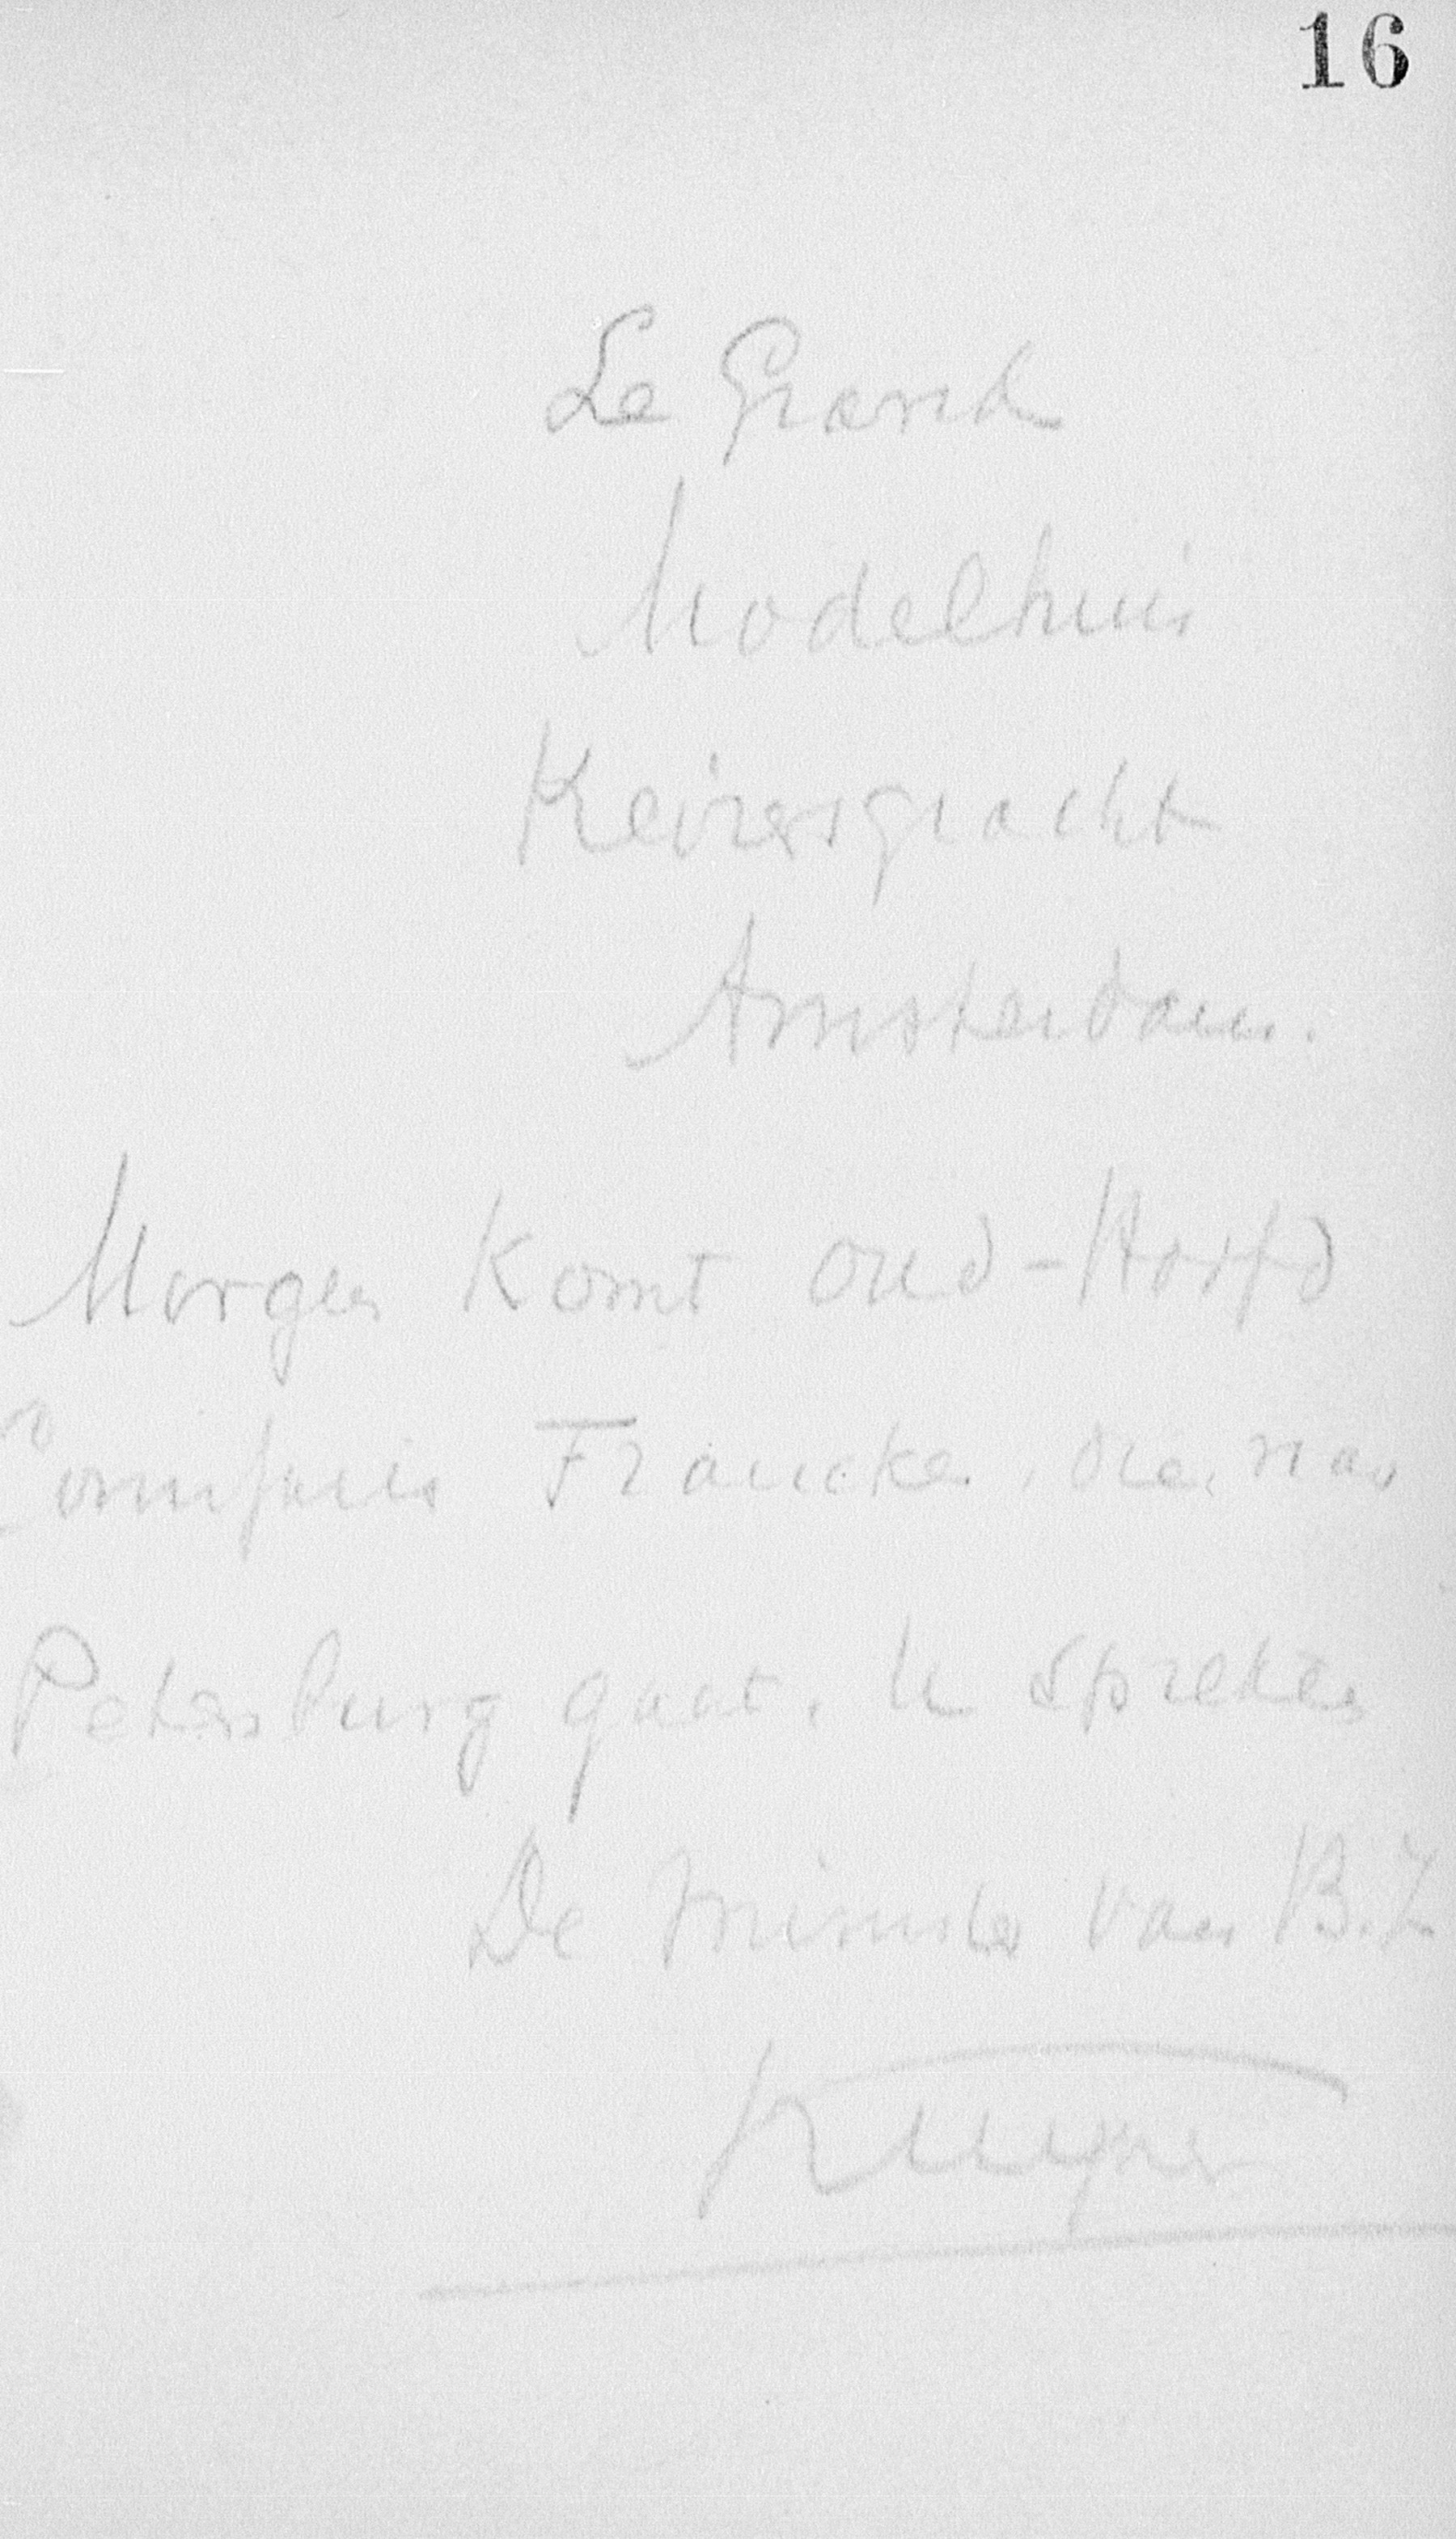 16
Le Grand
Modelhuis
Keizersgracht
Amsterdam.
Morgen komt oud-Hoofd
Commissaris Francken, die naar
Petersburg gaat, U spreken
De Minister van B.Z.
Kuyper